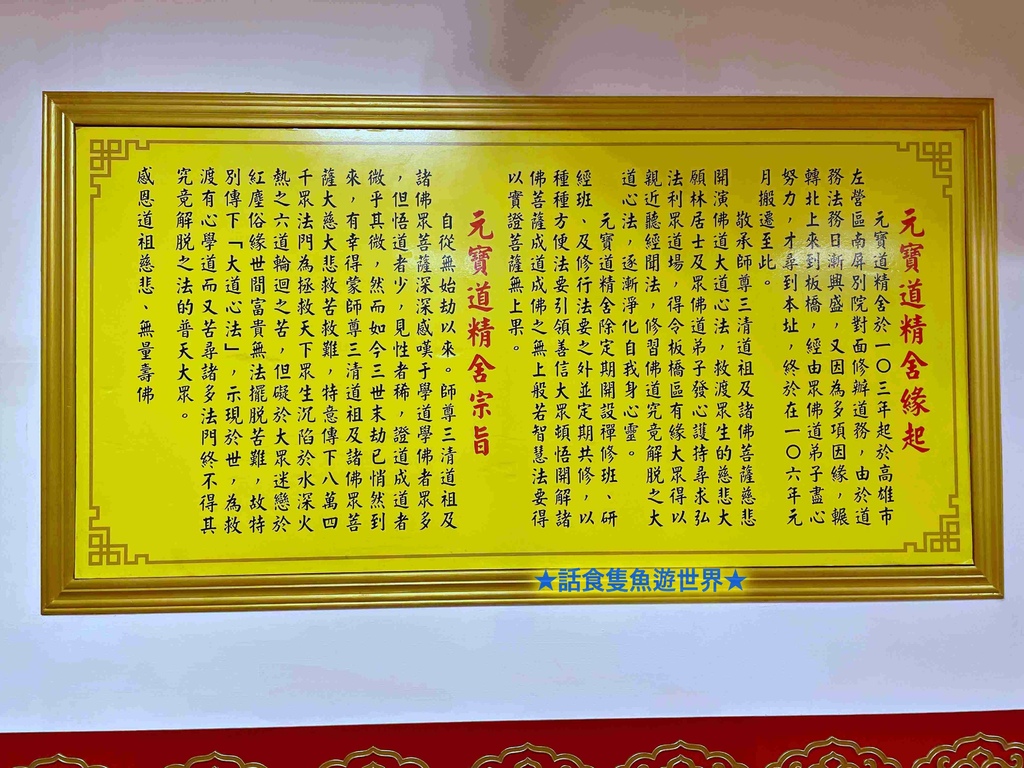 元寶道精舍緣起
元寶道精舍於一０三年起於高雄市
左營區南屏別院對面修辦道務，由於道
務法務日漸興盛，又因為多項因緣，輾
轉北上來到板橋，經由眾佛道弟子盡心
努力，才尋到本址，終於在一０六年元
月搬遷至此。
敬承師尊三清道祖及諸佛菩薩慈悲
開演佛道大道心法，救渡眾生的慈悲大
願林居士及眾佛道弟子發心護持尋求弘
法利眾道場，得令板橋區有緣大眾得以
親近聽經聞法，修習佛道究竟解脫之大
道心法，逐漸淨化自我身心靈。
元寶道精舍除定期開設禪修班、研
經班、及修行法要之外並定期共修，以
種種方便法要引領善信大眾頓悟開解諸
佛菩薩成道成佛之無上般若智慧法要得
以實證菩薩無上果。
元寶道精舍宗旨
自從無始劫以來。師尊三清道祖及
諸佛眾菩薩深深感嘆于學道學佛者眾多
，但悟道者少，見性者稀，證道成道者
微乎其微，然而如今三世末劫已悄然到
來，有幸得蒙師尊三清道祖及諸佛眾菩
薩大慈大悲救苦救難，特意傳下八萬四
千眾法門為拯救天下眾生沉陷於水深火
熱之六道輪迴之苦，但礙於大眾迷戀於
紅塵俗緣世間富貴無法擺脫苦難，故特
別傳下「大道心法」，示現於世，為救
渡有心學道而又苦尋諸多法門終不得其
究竟解脫之法的普天大眾。
感恩道祖慈悲、無量壽佛
★話食隻魚遊世界★